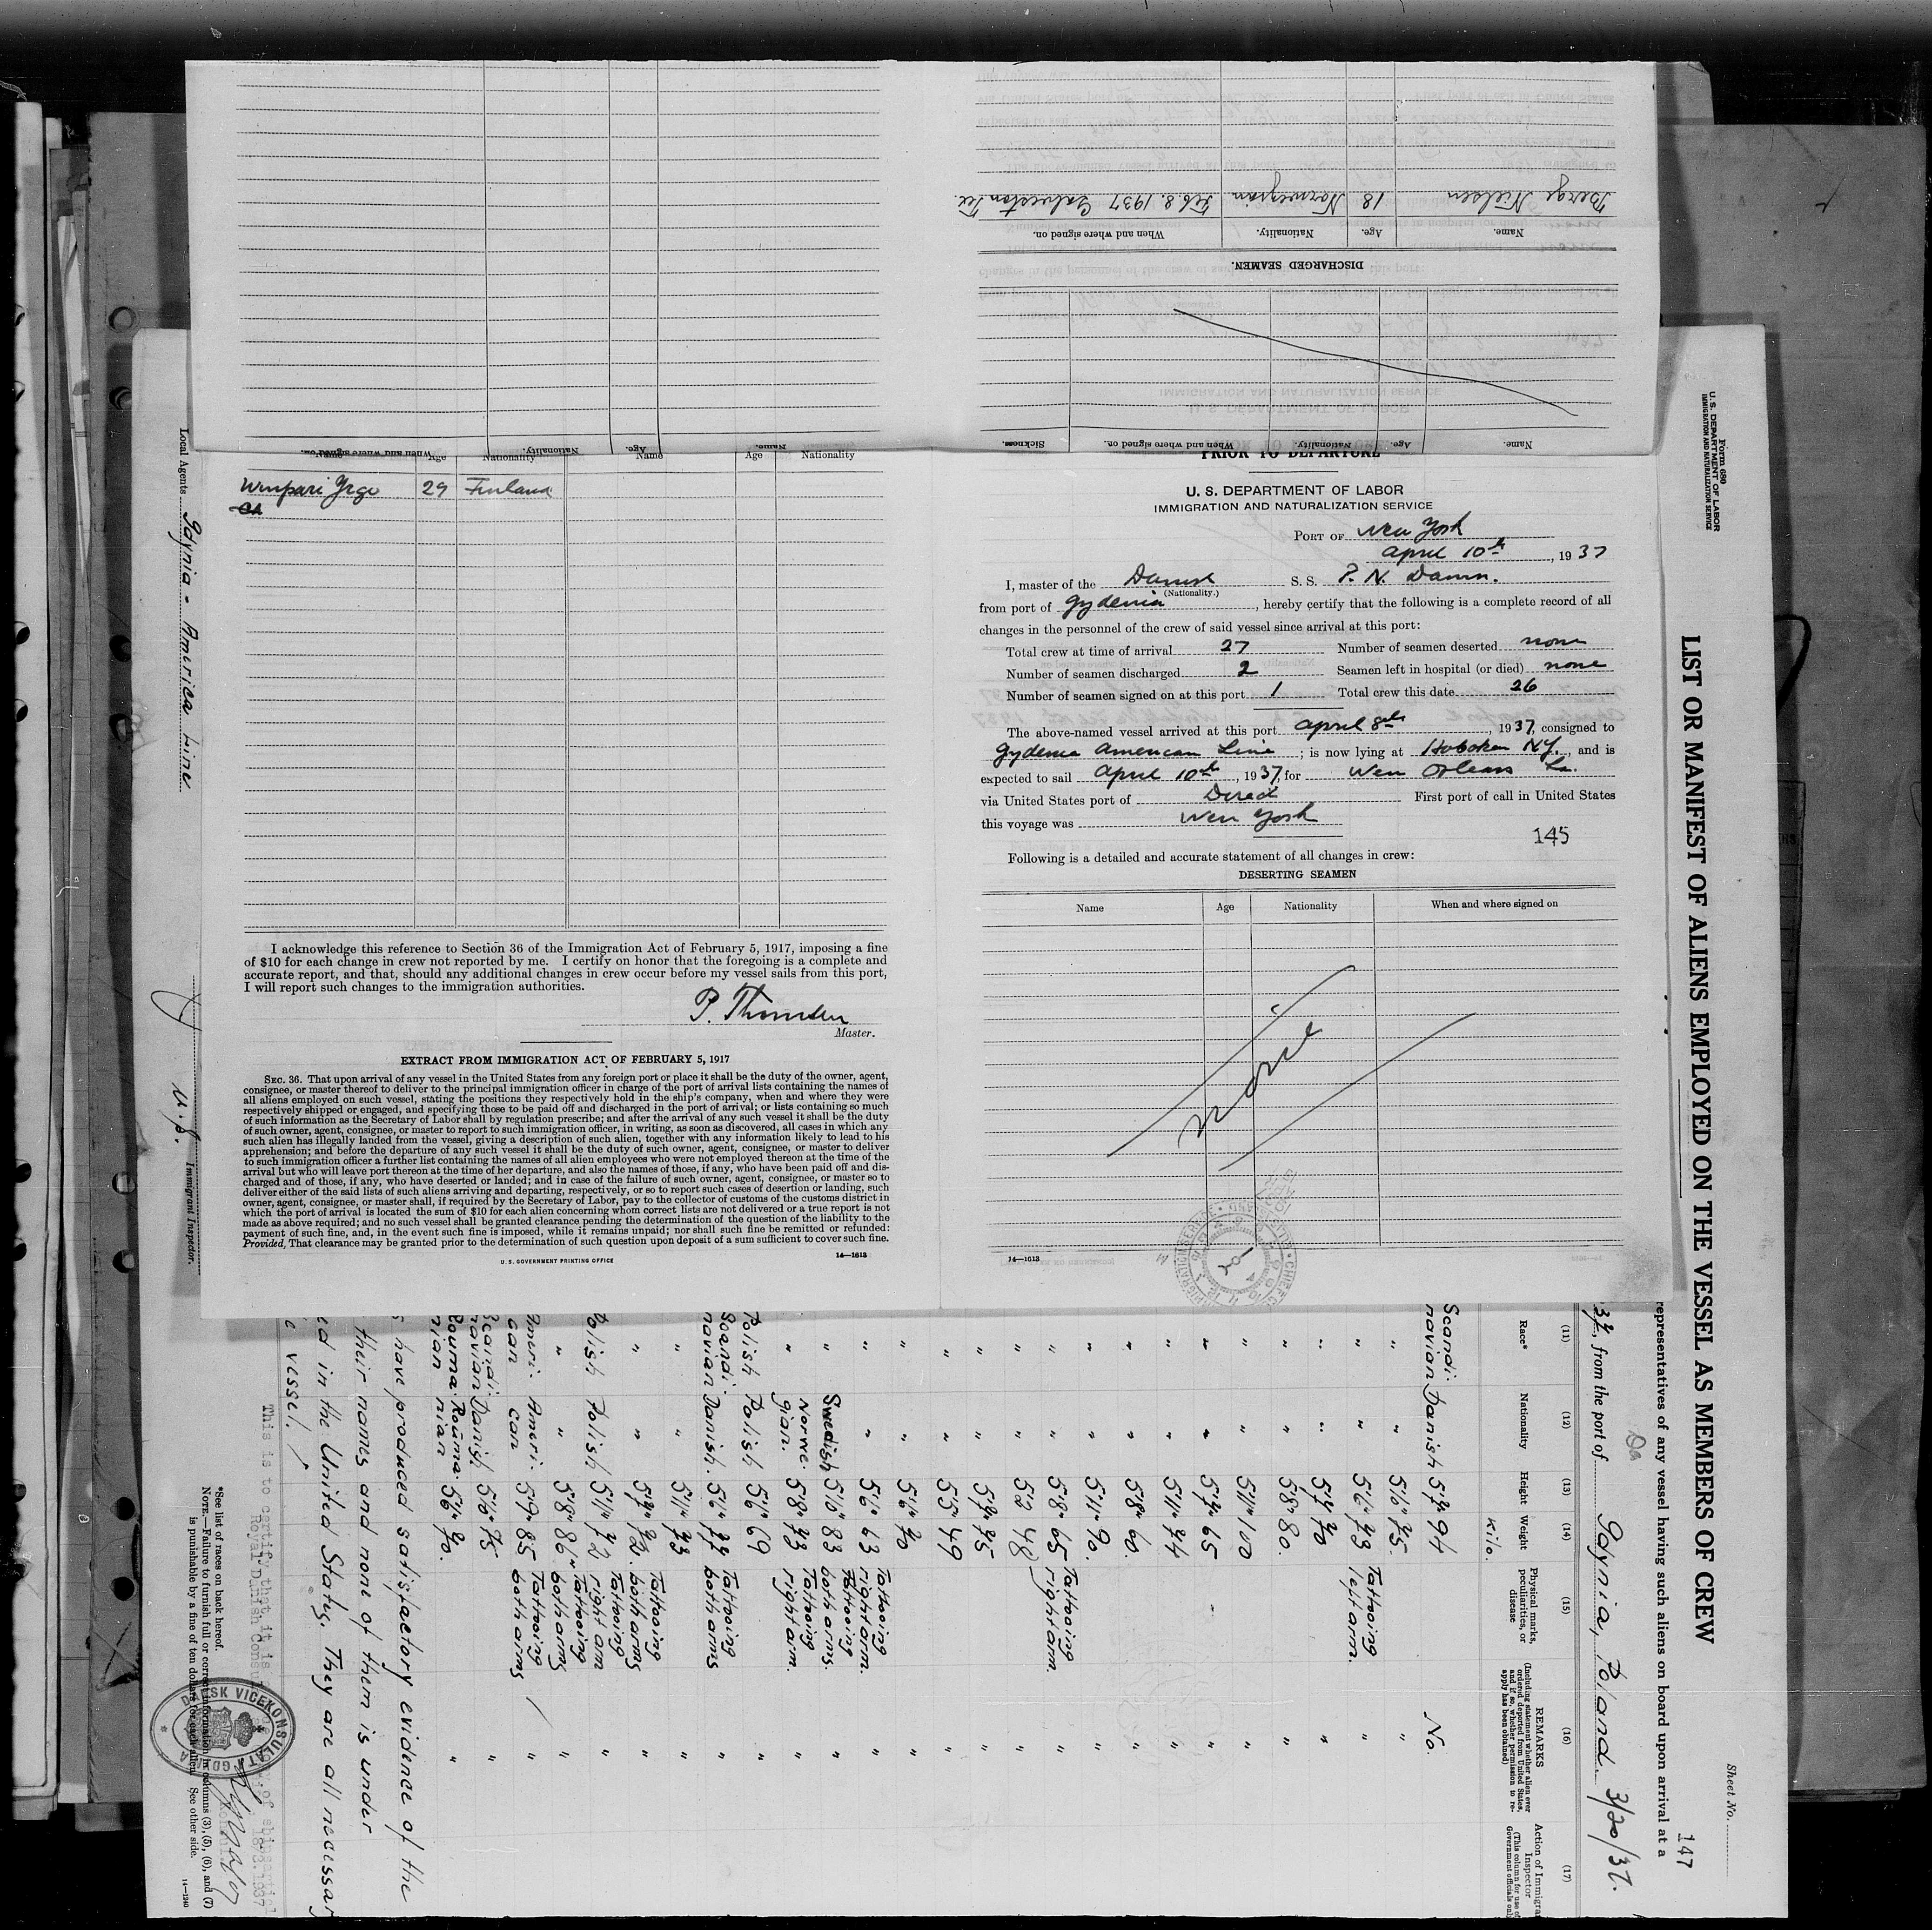 Berge Nielsen 18 Norwegian Feb. 8. 1937 Galveston Tex.
Name. Age. Nationality. When and where signed on.
DISCHARGED SEAMEN.
Name. Age. Nationality. When and where signed on. Sickness.
Name. Age. Nationality. When and where signed on.
Name Age Nationality Name Age Nationality
29 Finland
I acknowledge this reference to Section 36 of the Immigration Act of February 5, 1917, imposing a fine
of $10 for each change in crew not reported by me. I certify on honor that the foregoing is a complete and
accurate report, and that, should any additional changes in crew occur before my vessel sails from this port,
I will report such changes to the immigration authorities.
P. Thomsen
Master.
EXTRACT FROM IMMIGRATION ACT OF FEBRUARY 5, 1917
SEC. 36. That upon arrival of any vessel in the United States from any foreign port or place it shall be the duty of the owner, agent,
consignee, or master thereof to deliver to the principal immigration officer in charge of the port of arrival lists containing the names of
all aliens employed on such vessel, stating the positions they respectively hold in the ship's company, when and where they were
respectively shipped or engaged, and specifying those to be paid off and discharged in the port of arrival; or lists containing so much
of such information as the Secretary of Labor shall by regulation prescribe; and after the arrival of any such vessel it shall be the duty
of such owner, agent, consignee, or master to report to such immigration officer, in writing, as soon as discovered, all cases in which any
such alien has illegally landed from the vessel, giving a description of such alien, together with any information likely to lead to his
apprehension; and before the departure of any such vessel it shall be the duty of such owner, agent, consignee, or master to deliver
to such immigration officer a further list containing the names of all alien employees who were not employed thereon at the time of the
arrival but who will leave port thereon at the time of her departure, and also the names of those, if any, who have been paid off and dis-
charged and of those, if any, who have deserted or landed; and in case of the failure of such owner, agent, consignee, or master so to
deliver either of the said lists of such aliens arriving and departing, respectively, or so to report such cases of desertion or landing, such
owner, agent, consignee, or master shall, if required by the Secretary of Labor, pay to the collector of customs of the customs district in
which the port of arrival is located the sum of $10 for each alien concerning whom correct lists are not delivered or a true report is not
made as above required; and no such vessel shall be granted clearance pending the determination of the question of the liability to the
payment of such fine, and, in the event such fine is imposed, while it remains unpaid; nor shall such fine be remitted or refunded:
Provided, That clearance may be granted prior to the determination of such question upon deposit of a sum sufficient to cover such fine.
U.S. GOVERNMENT PRINTING OFFICE 14—1613
PRIOR TO DEPARTURE
U. S. DEPARTMENT OF LABOR
IMMIGRATION AND NATURALIZATION SERVICE
PORT OF New York
April 10th, 1937
I, master of the Danish S. S. P. N. Damm.
(Nationality.)
from port of Gydenia, hereby certify that the following is a complete record of all
changes in the personnel of the crew of said vessel since arrival at this port:
Total crew at time of arrival 27 Number of seamen deserted none
Number of seamen discharged 2 Seamen left in hospital (or died) none
Number of seamen signed on at this port 1 Total crew this date 26
The above-named vessel arrived at this port April 8th, 1937, consigned to
Gydenia American Line; is now lying at Hoboken N.Y., and is
expected to sail April 10th, 1937, for New Orleans La.
via United States port of Direct First port of call in United States
this voyage was New York
145
Following is a detailed and accurate statement of all changes in crew:
DESERTING SEAMEN
Name Age Nationality When and where signed on
none
14—1613
Form 680
U. S. DEPARTMENT OF LABOR
IMMIGRATION AND NATURALIZATION SERVICE
Sheet No.
147
LIST OR MANIFEST OF ALIENS EMPLOYED ON THE VESSEL AS MEMBERS OF CREW
representatives of any vessel having such aliens on board upon arrival at a
37, from the port of Gdynia, Poland. 3/20/37.
(11) (12) (13) (14) (15) (16) (17)
Race* Nationality Height Weight Physical marks, peculiarities, or disease REMARKS Action of Immigra
(Including statement whether alien ever
ordered deported from United States,
and if so, whether permission to re-
apply has been obtained)
Inspector
(This column for use of
Government officials onl
Kilo.
Scandi-
navian Danish 5'7" 94 No.
" " 5'6" 75. "
" " 5'6" 73 Tattooing left arm. "
" " 5'7" 70 "
" " 5'8" 80. "
" " 5'11" 100 "
" " 5'7" 65 "
" " 5'11" 74 "
" " 5'8" 60. "
" " 5'11" 90. "
" " 5'8" 65 Tattooing right arm. "
" " 5'2" 48 "
" " 5'7" 75 "
" " 5'3" 49 "
" " 5'6" 70 "
" " 5'6" 63 Tattooing right arm. "
" Swedish 5'10" 83 Tattooing both arms. "
" Norwe-gian. 5'8" 73 Tattooing right arm. "
Polish Polish 5'6" 69 "
Scandi-
navian Danish. 5'6" 77 Tattooing both arms "
" " 5'11" 73 "
" " 5'7" 72. Tattooing both arms "
Polish Polish 5'11" 72 Tattooing right arm "
" " 5'8" 86 Tattooing both arms "
Ameri-can Ameri-can 5'9" 85 Tattooing both arms "
Scandi-
navian Danish 5'6" 75 "
Rouma-nian Rouma-nian 5'6" 70. "
have produced satisfactory evidence of the
their names and none of them is under
ed in the United States. They are all necessar
e vessel.
This is to certify that it is
Royal Danish Consul
DANSK VICEKONSULAT GDYNIA
*See list of races on back hereof.
NOTE.—Failure to furnish full or correct information in columns (3), (5), (6), and (7)
is punishable by a fine of ten dollars for each alien. See other side.
14—1240
Local Agents Gdynia - America Line
U.S.
Immigrant Inspector.